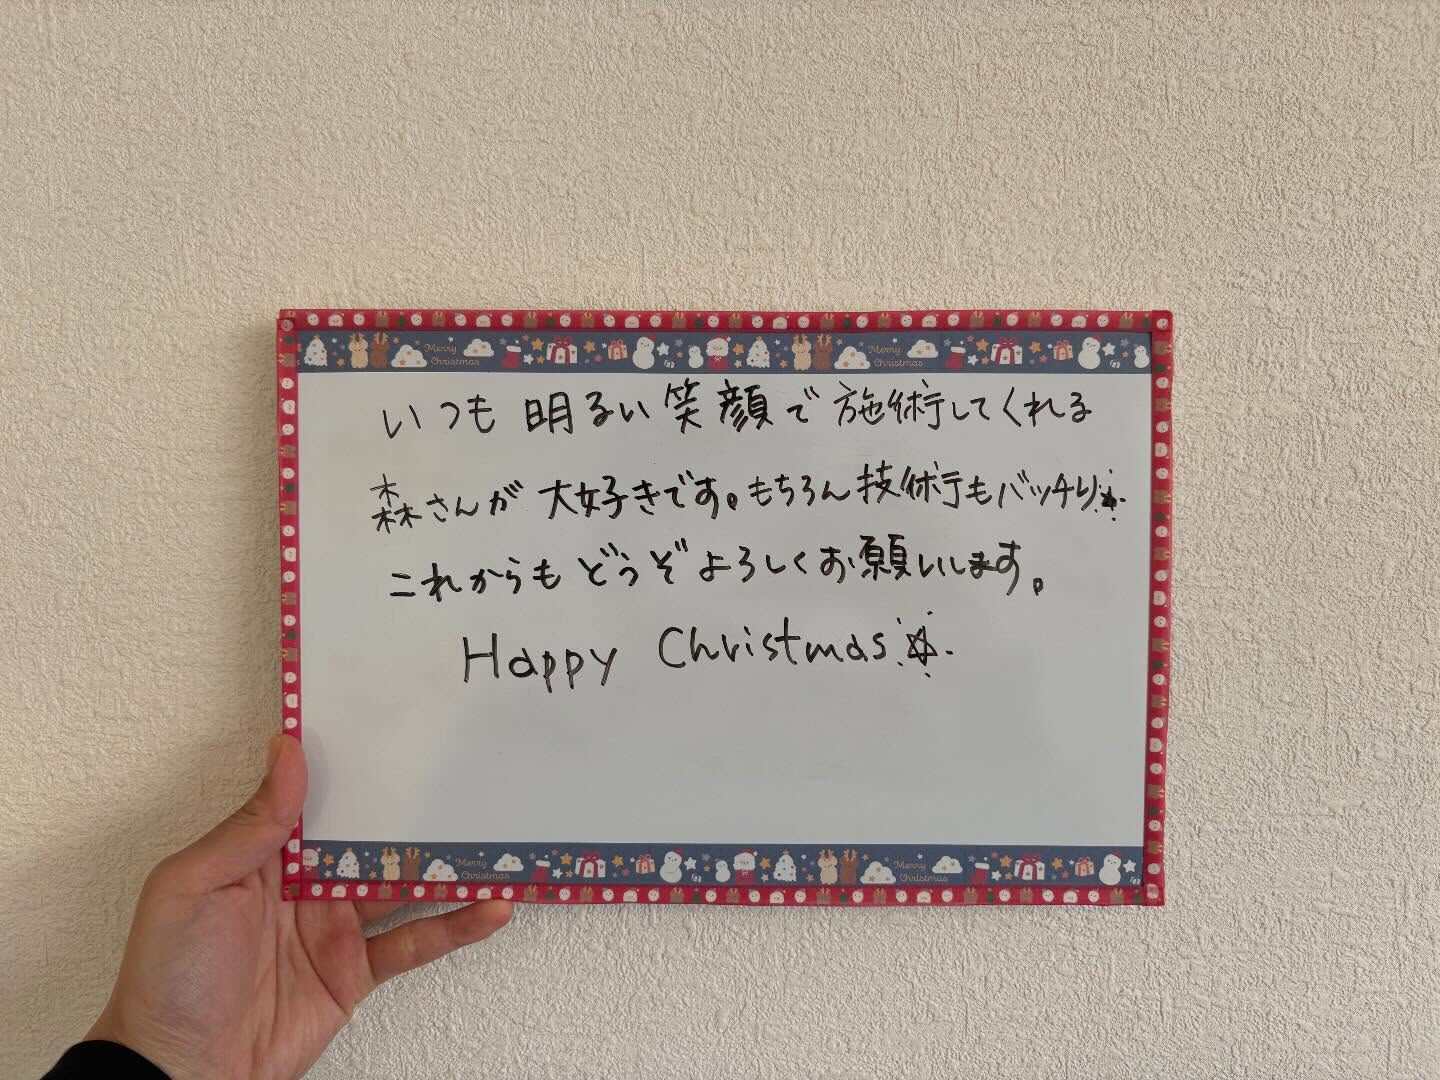 Merry Christmas Merry Christmas
いつも 明るい笑顔で施術してくれる
森さんが 大好きです。もちろん技術もバッチり☆
これからもどうぞよろしくお願いします。
Happy Christmas☆
Merry Christmas Merry Christmas